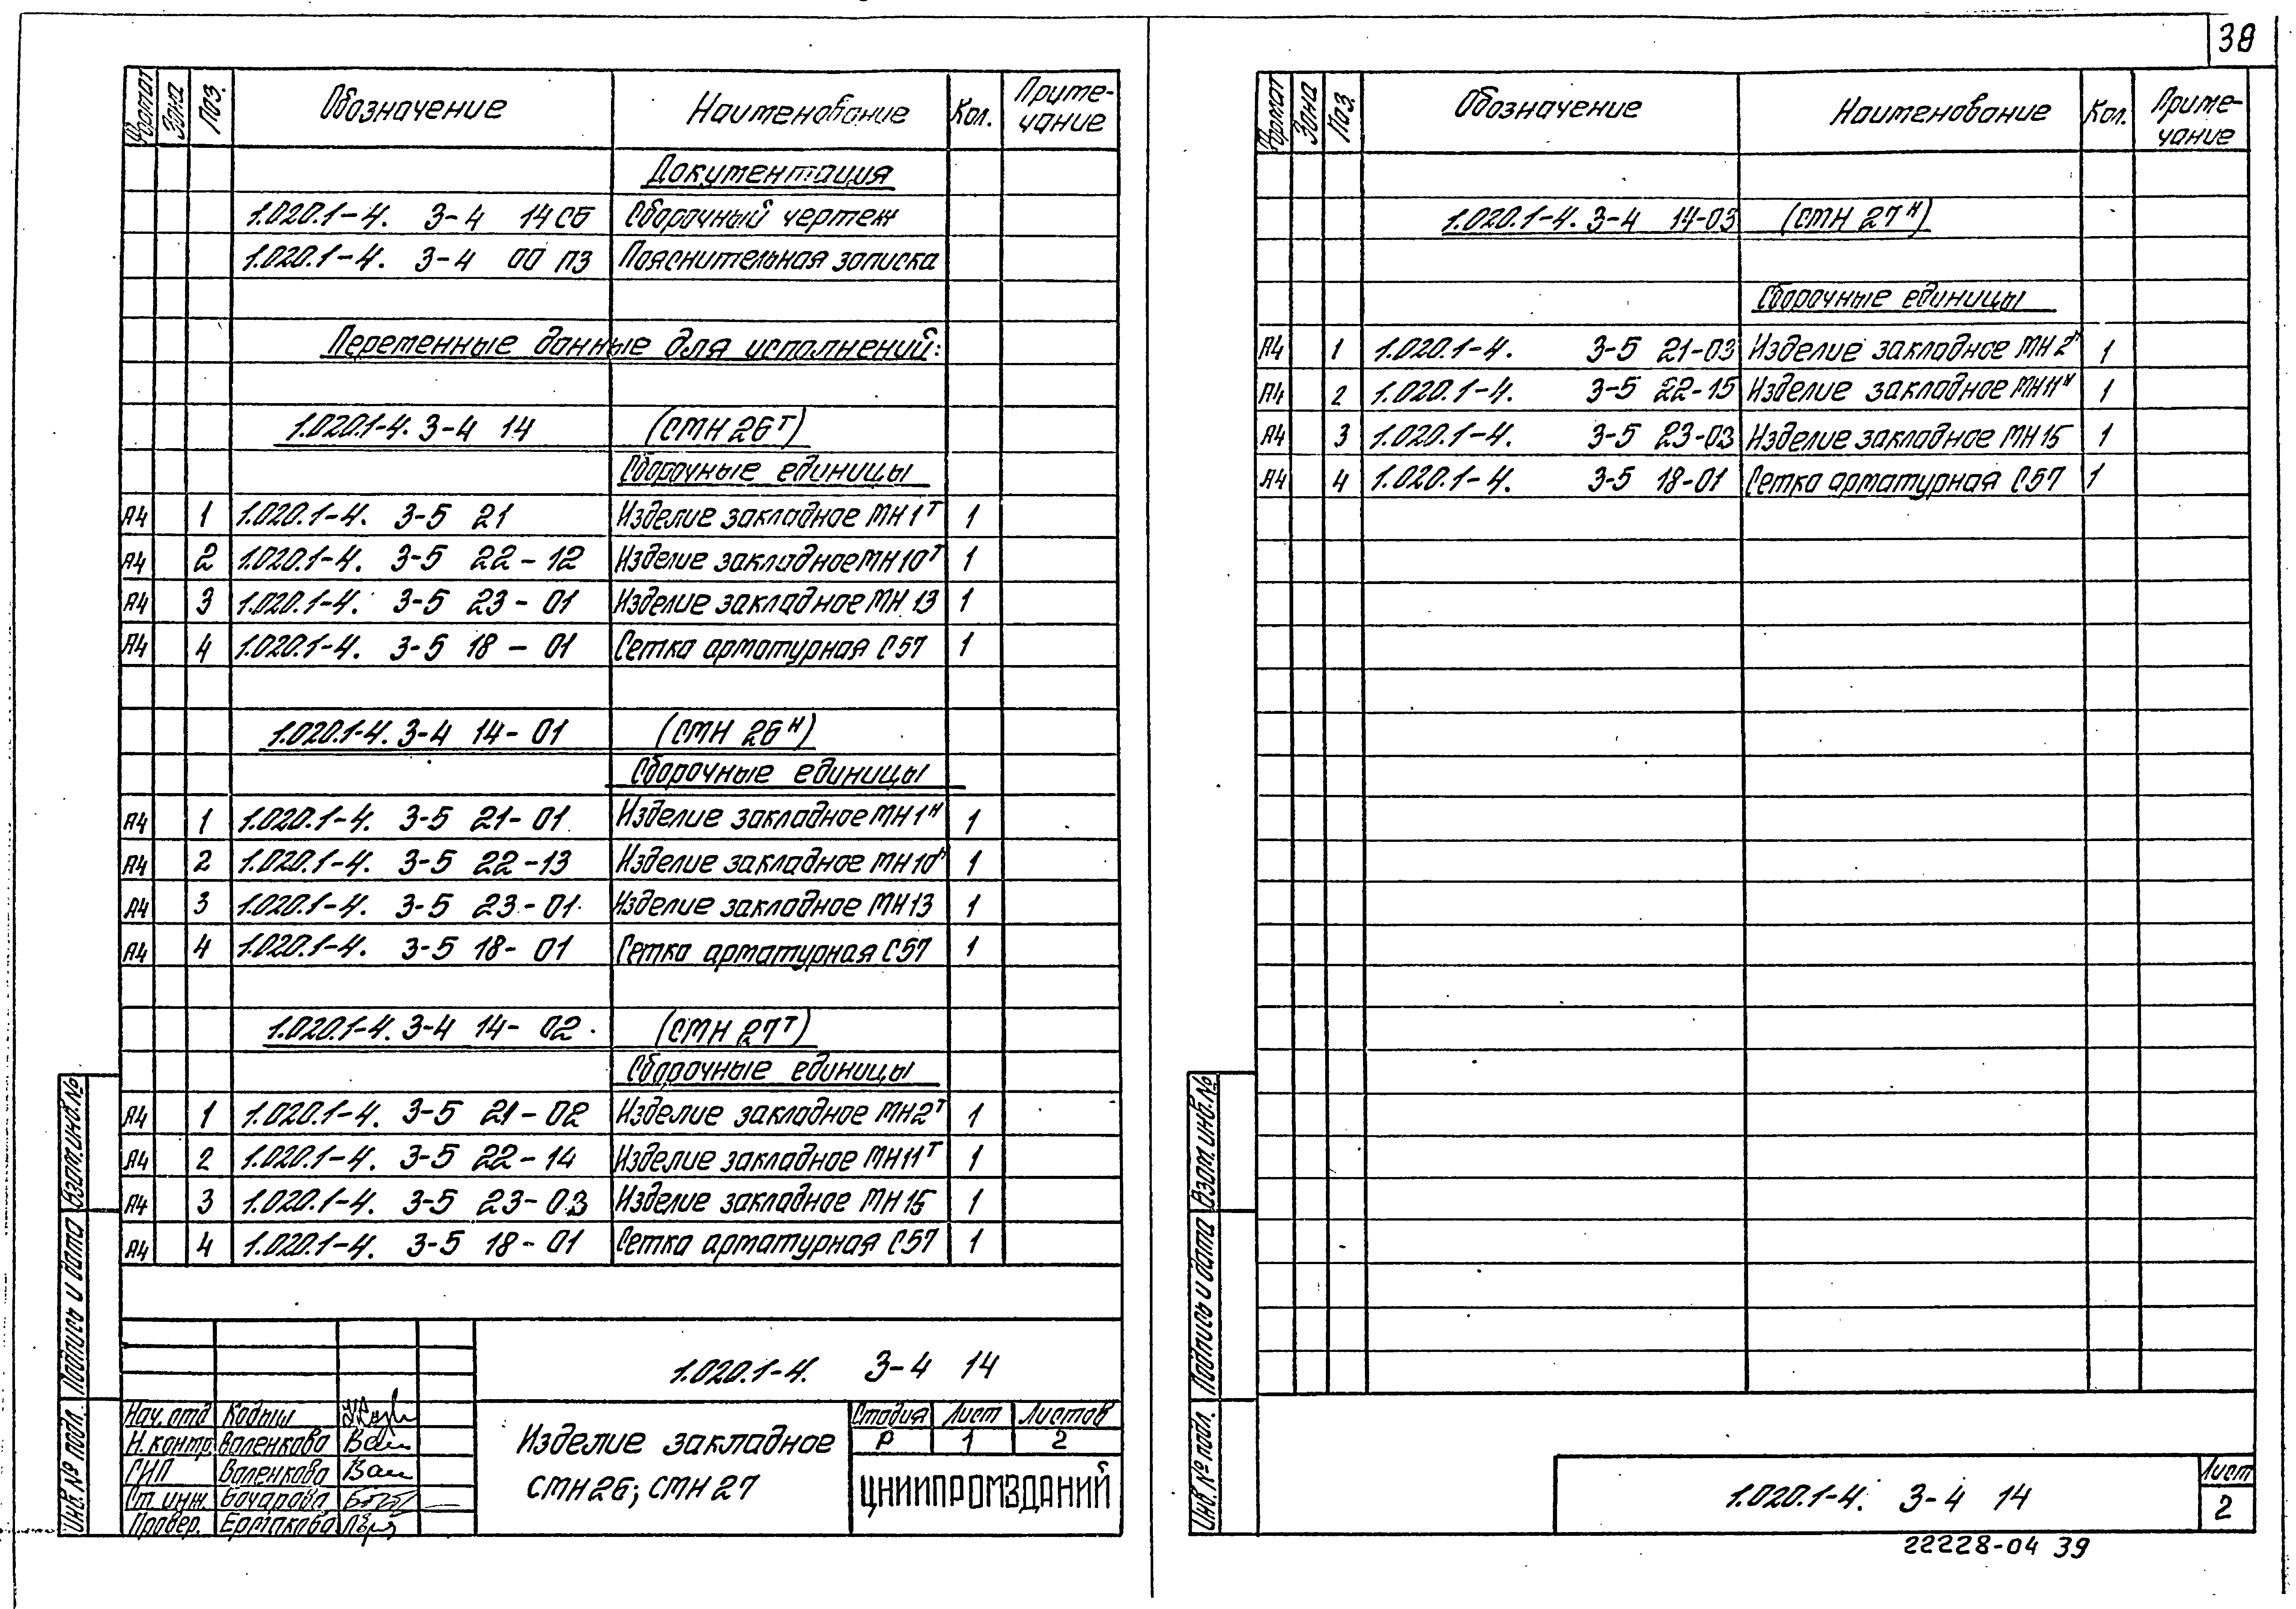 38
Формат Зона Поз. Обозначение Наименование Кол. Приме-
чание
Документация
1.020.1-4. 3-4 14 СБ Сборочный чертеж
1.020.1-4. 3-4 00 ПЗ Пояснительная записка
Переменные данные для исполнений:
1.020.1-4. 3-4 14 (СМН 26ᵀ)
Сборочные единицы
А4 1 1.020.1-4. 3-5 21 Изделие закладное МН 1ᵀ 1
А4 2 1.020.1-4. 3-5 22-12 Изделие закладное МН 10ᵀ 1
А4 3 1.020.1-4. 3-5 23-01 Изделие закладное МН 13 1
А4 4 1.020.1-4. 3-5 18-01 Сетка арматурная С57 1
1.020.1-4. 3-4 14-01 (СМН 26ᴴ)
Сборочные единицы
А4 1 1.020.1-4. 3-5 21-01 Изделие закладное МН 1ᴴ 1
А4 2 1.020.1-4. 3-5 22-13 Изделие закладное МН 10ᴴ 1
А4 3 1.020.1-4. 3-5 23-01 Изделие закладное МН 13 1
А4 4 1.020.1-4. 3-5 18-01 Сетка арматурная С57 1
1.020.1-4. 3-4 14-02 (СМН 27ᵀ)
Сборочные единицы
А4 1 1.020.1-4. 3-5 21-02 Изделие закладное МН 2ᵀ 1
А4 2 1.020.1-4. 3-5 22-14 Изделие закладное МН 11ᵀ 1
А4 3 1.020.1-4. 3-5 23-03 Изделие закладное МН 15 1
А4 4 1.020.1-4. 3-5 18-01 Сетка арматурная С57 1
Инв. № подл. Подпись и дата Взам. инв. №
1.020.1-4. 3-4 14
Нач. отд Кодыш
Н. контр. Валенкова
ГИП Валенкова
Ст. инж. Бочарова
Провер. Ермакова
Изделие закладное
СМН 26; СМН 27
Стадия Лист Листов
Р 1 2
ЦНИИПРОМЗДАНИЙ
Формат Зона Поз. Обозначение Наименование Кол. Приме-
чание
1.020.1-4. 3-4 14-03 (СМН 27ᴴ)
Сборочные единицы
А4 1 1.020.1-4. 3-5 21-03 Изделие закладное МН 2ᴴ 1
А4 2 1.020.1-4. 3-5 22-15 Изделие закладное МН 11ᴴ 1
А4 3 1.020.1-4. 3-5 23-03 Изделие закладное МН 15 1
А4 4 1.020.1-4. 3-5 18-01 Сетка арматурная С57 1
Инв. № подл. Подпись и дата Взам. инв. №
1.020.1-4. 3-4 14
Лист
2
22228-04 39